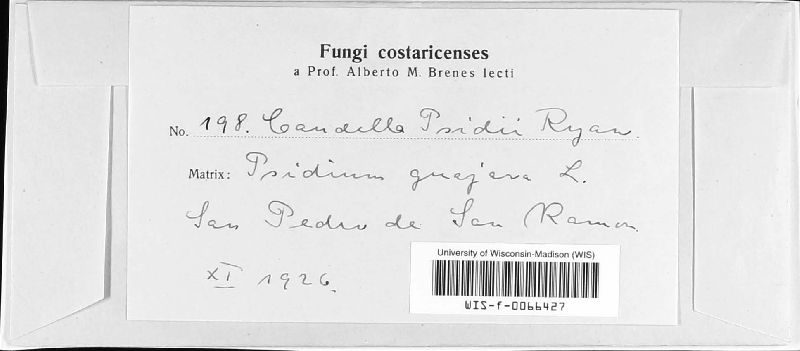 Fungi costaricenses
a Prof. Alberto M. Brenes lecti
No. 198. Caudella Psidii Ryan.
Matrix: Psidium guajava L.
San Pedro de San Ramon.
XI 1926.
University of Wisconsin-Madison (WIS)
WIS-f-0066427